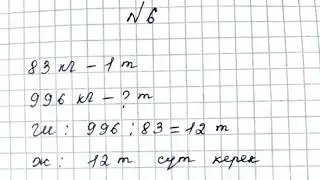 №6
83 кг – 1 т
996 кг – ? т
ш : 996 : 83 = 12 т
ж : 12 т сут керек